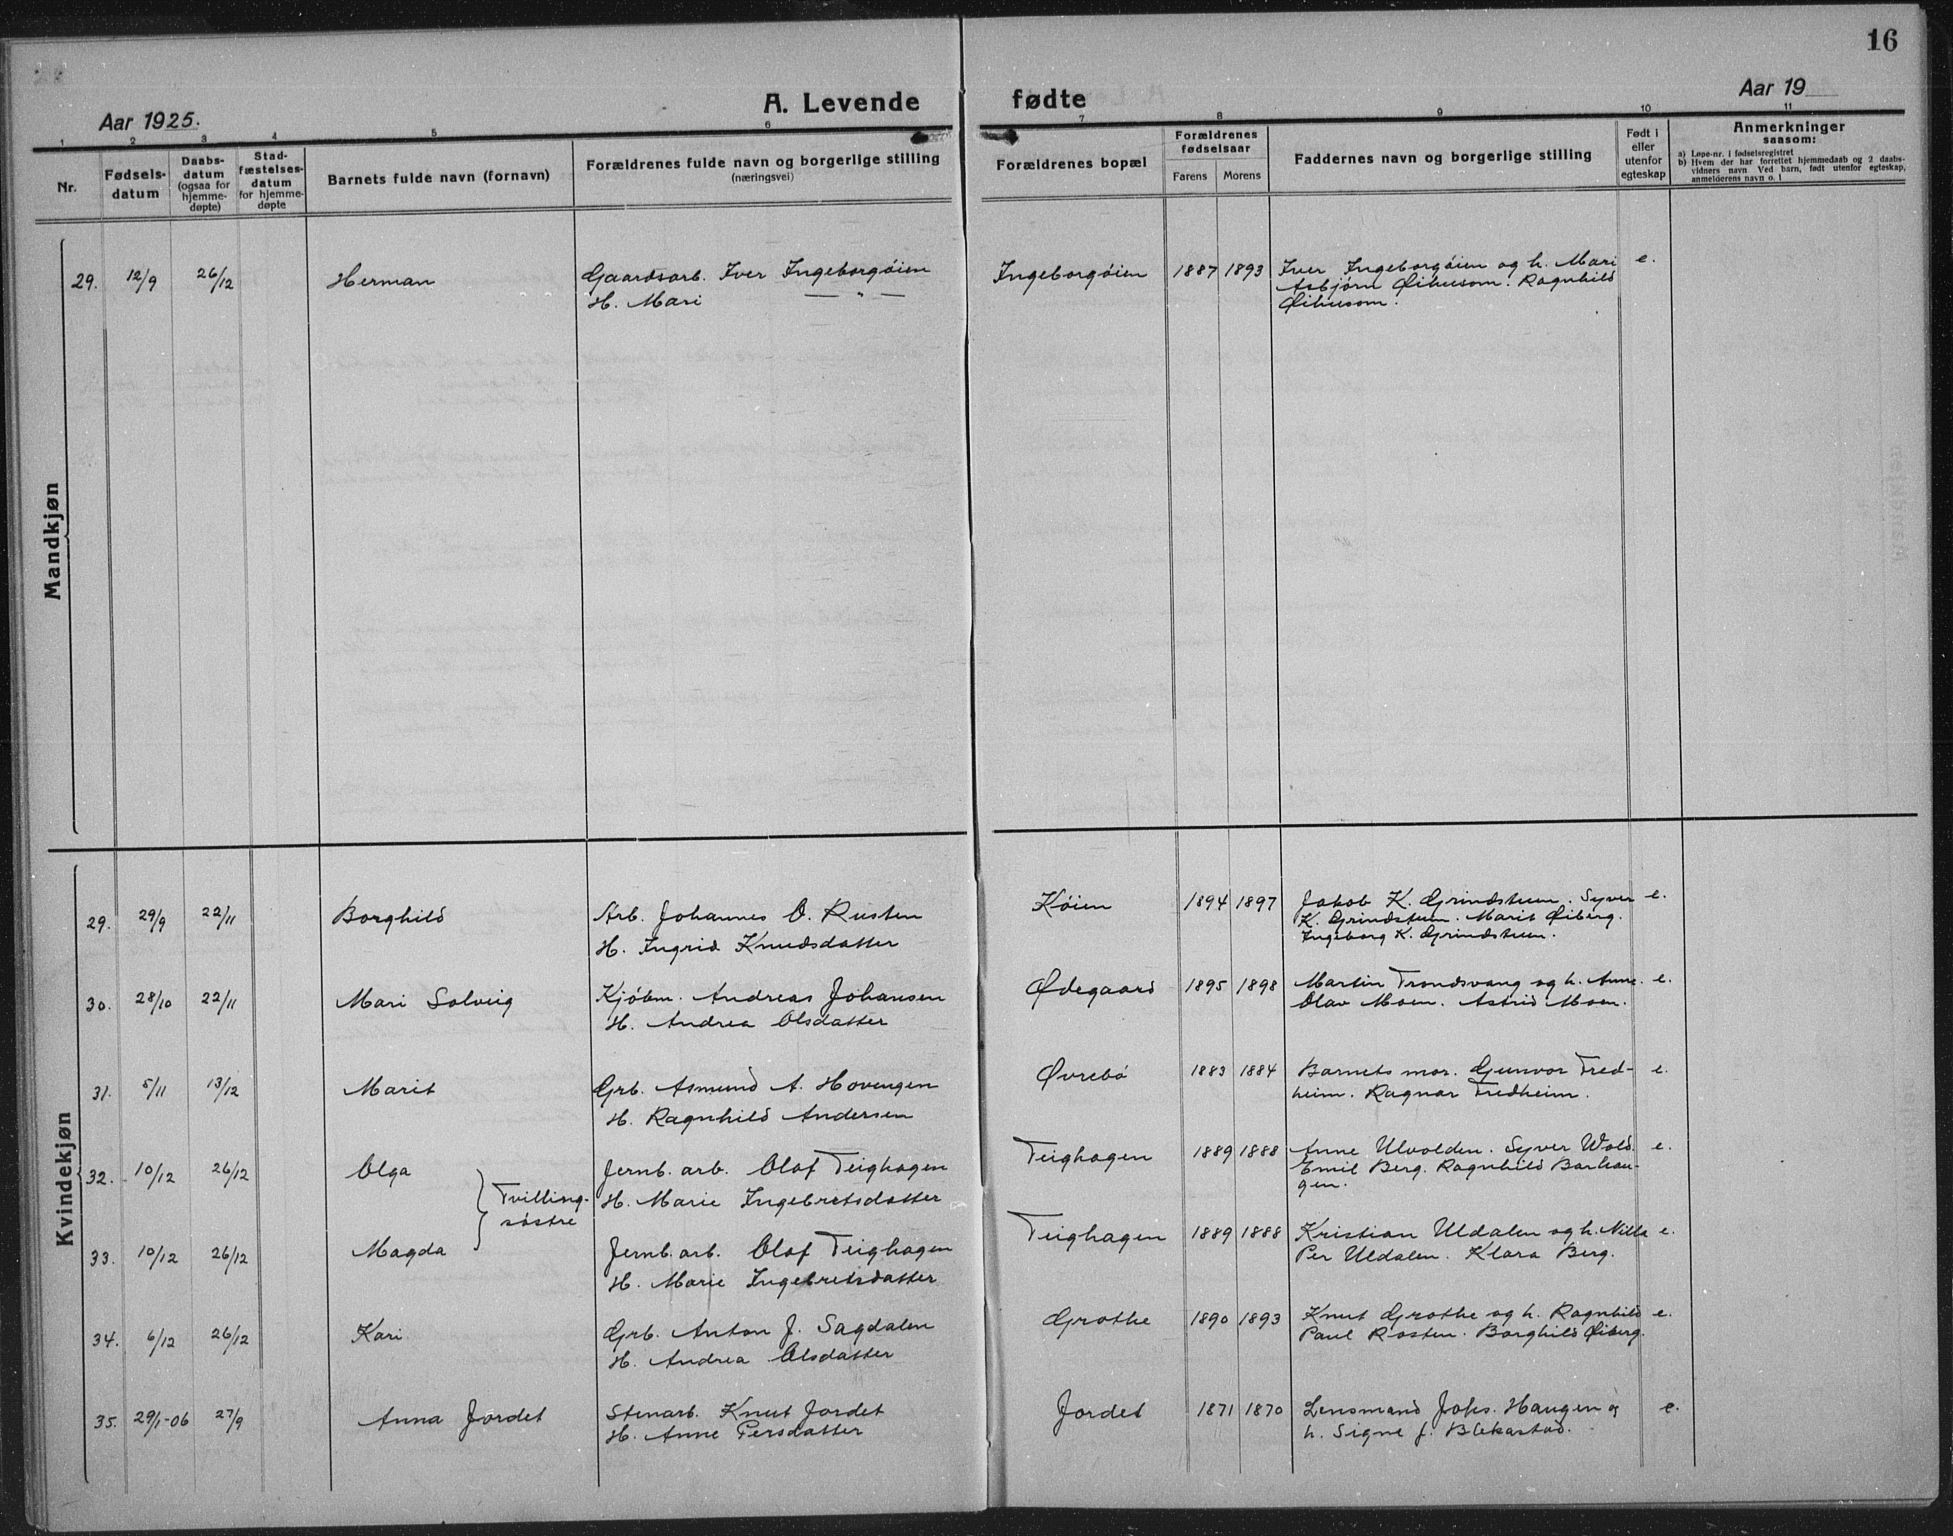 16
Aar 1925.
A. Levende fødte
Aar 19
1 2 3 4 5 6 7 8 9 10 11
Nr.
Fødsels-
datum
Daabs-
datum
(ogsaa for
hjemme-
døpte)
Stad-
fæstelses-
datum
for hjemme-
døpte
Barnets fulde navn (fornavn)
Forældrenes fulde navn og borgerlige stilling
(næringsvei)
Forældrenes bopæl
Forældrenes
fødselsaar
Farens Morens
Faddernes navn og borgerlige stilling
Født i
eller
utenfor
egteskap
Anmerkninger
saasom:
a) Løpe-nr. i fødselsregistret
b) Hvem der har forrettet hjemmedaab og 2 daabs-
vidners navn Ved barn, født utenfor egteskap,
anmelderens navn o. l
Mandkjøn
29. 12/9 26/12 Herman Gaardsarb. Iver Ingeborgøien Ingeborgøien 1887 1893 Iver Ingeborgøien og h. Mari e.
H. Mari — " — Asbjørn Øihusom. Ragnhild
Øihusom.
Kvindekjøn
29. 29/9 22/11 Borghild Arb. Johannes O. Rusten Køien 1894 1897 Jakob K. Grindstuen. Syver e.
K. Grindstuen. Marit Øiberg.
H. Ingrid Knudsdatter Ingeborg K. Grindstuen.
30. 28/10 22/11 Mari Solveig Kjøbm. Andreas Johansen Ødegaard 1895 1898 Martin Trondsvang og h. Anne. e.
H. Andrea Olsdatter Olav Moen. Astrid Moen.
31. 5/11 13/12 Marit Grb. Asmund A. Hovengen Øvrebø 1883 1884 Barnets mor. Gunvor Fred- e.
H. Ragnhild Andersen heim. Ragnar Fredheim.
32. 10/12 26/12 Olga Jernb. arb. Olaf Teighagen Teighagen 1889 1888 Anne Ulvolden. Syver Wold. e.
Tvilling- H. Marie Ingebretsdatter Emil Berg. Ragnhild Barhau-
søstre gen.
33. 10/12 26/12 Magda Jernb. arb. Olaf Teighagen Teighagen 1889 1888 Kristian Uldalen og h. Nilla e.
H. Marie Ingebretsdatter Per Uldalen. Klara Berg.
34. 6/12 26/12 Kari Grb. Anton J. Sagdalen Grothe 1890 1893 Knut Grothe og h. Ragnhild e.
H. Andrea Olsdatter Paul Rosten. Borghild Øiberg.
35. 29/1-06 27/9 Anna Jordet Stenarb. Knut Jordet Jordet 1871 1870 Lensmand Johs. Haugen og e.
H. Anne Persdatter h. Signe f. Blekastad.